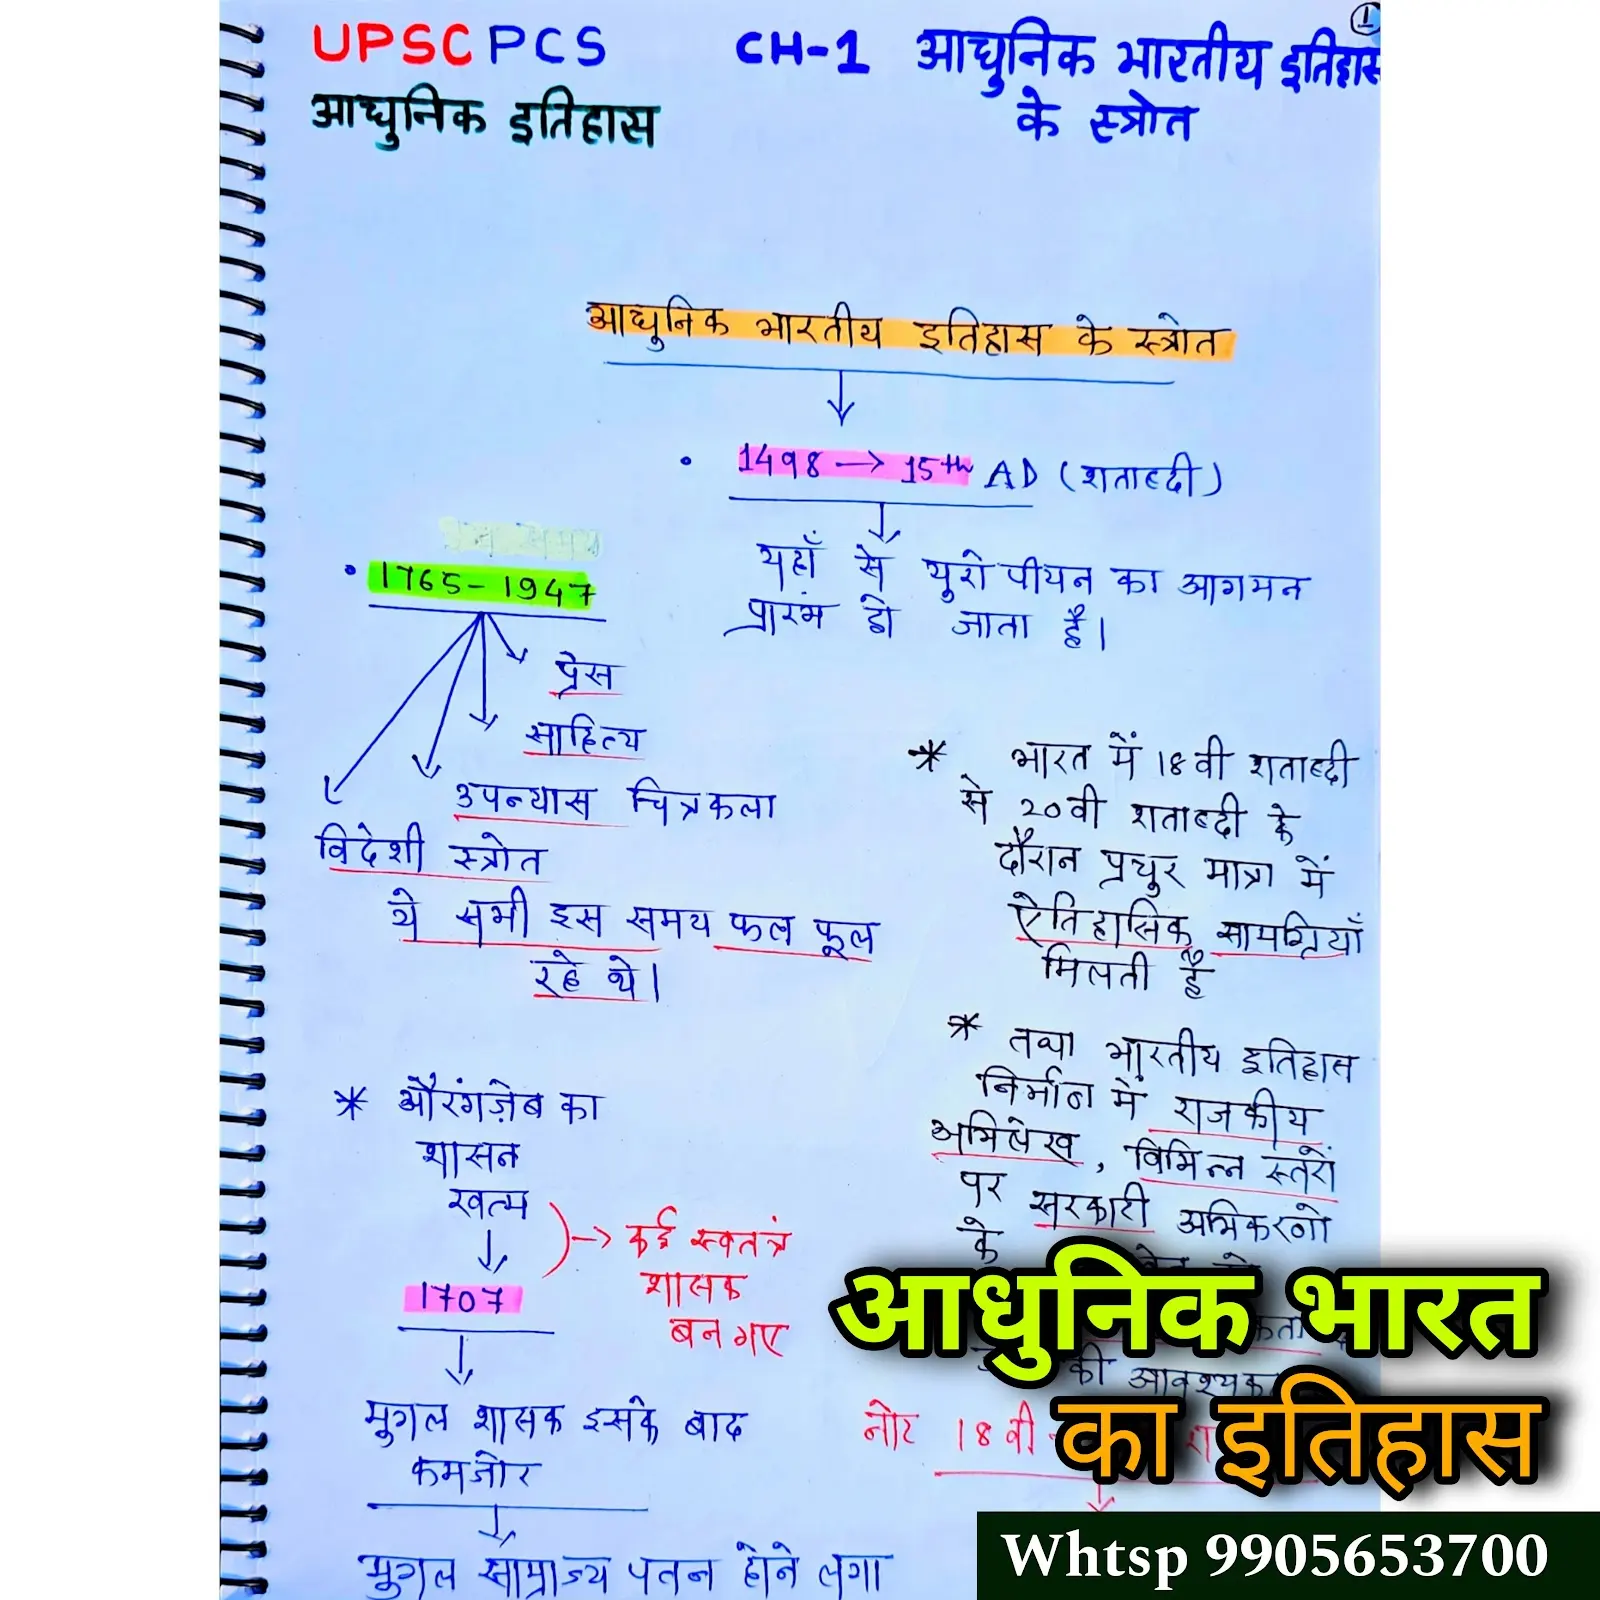 1
UPSC PCS
आधुनिक इतिहास
CH-1 आधुनिक भारतीय इतिहास
के स्त्रोत
आधुनिक भारतीय इतिहास के स्त्रोत
1498 → 15th AD (शताब्दी)
यहाँ से यूरोपीयन का आगमन
प्रारंभ हो जाता है।
1765-1947
प्रेस
साहित्य
उपन्यास चित्रकला
विदेशी स्त्रोत
ये सभी इस समय फल फूल
रहे थे।
* भारत में 18वी शताब्दी
से 20वी शताब्दी के
दौरान प्रचुर मात्रा में
ऐतिहासिक सामग्रियाँ
मिलती है
* तथा भारतीय इतिहास
निर्माण में राजकीय
अभिलेख, विभिन्न स्तरों
पर सरकारी अभिकरणो
के
की आवश्यक
* औरंगज़ेब का
शासन
खत्म
→ कई स्वतंत्र
शासक
बन गए
1707
मुगल शासक इसके बाद
कमजोर
मुगल साम्राज्य पतन होने लगा
नोट 18वी
आधुनिक भारत
का इतिहास
Whtsp 9905653700